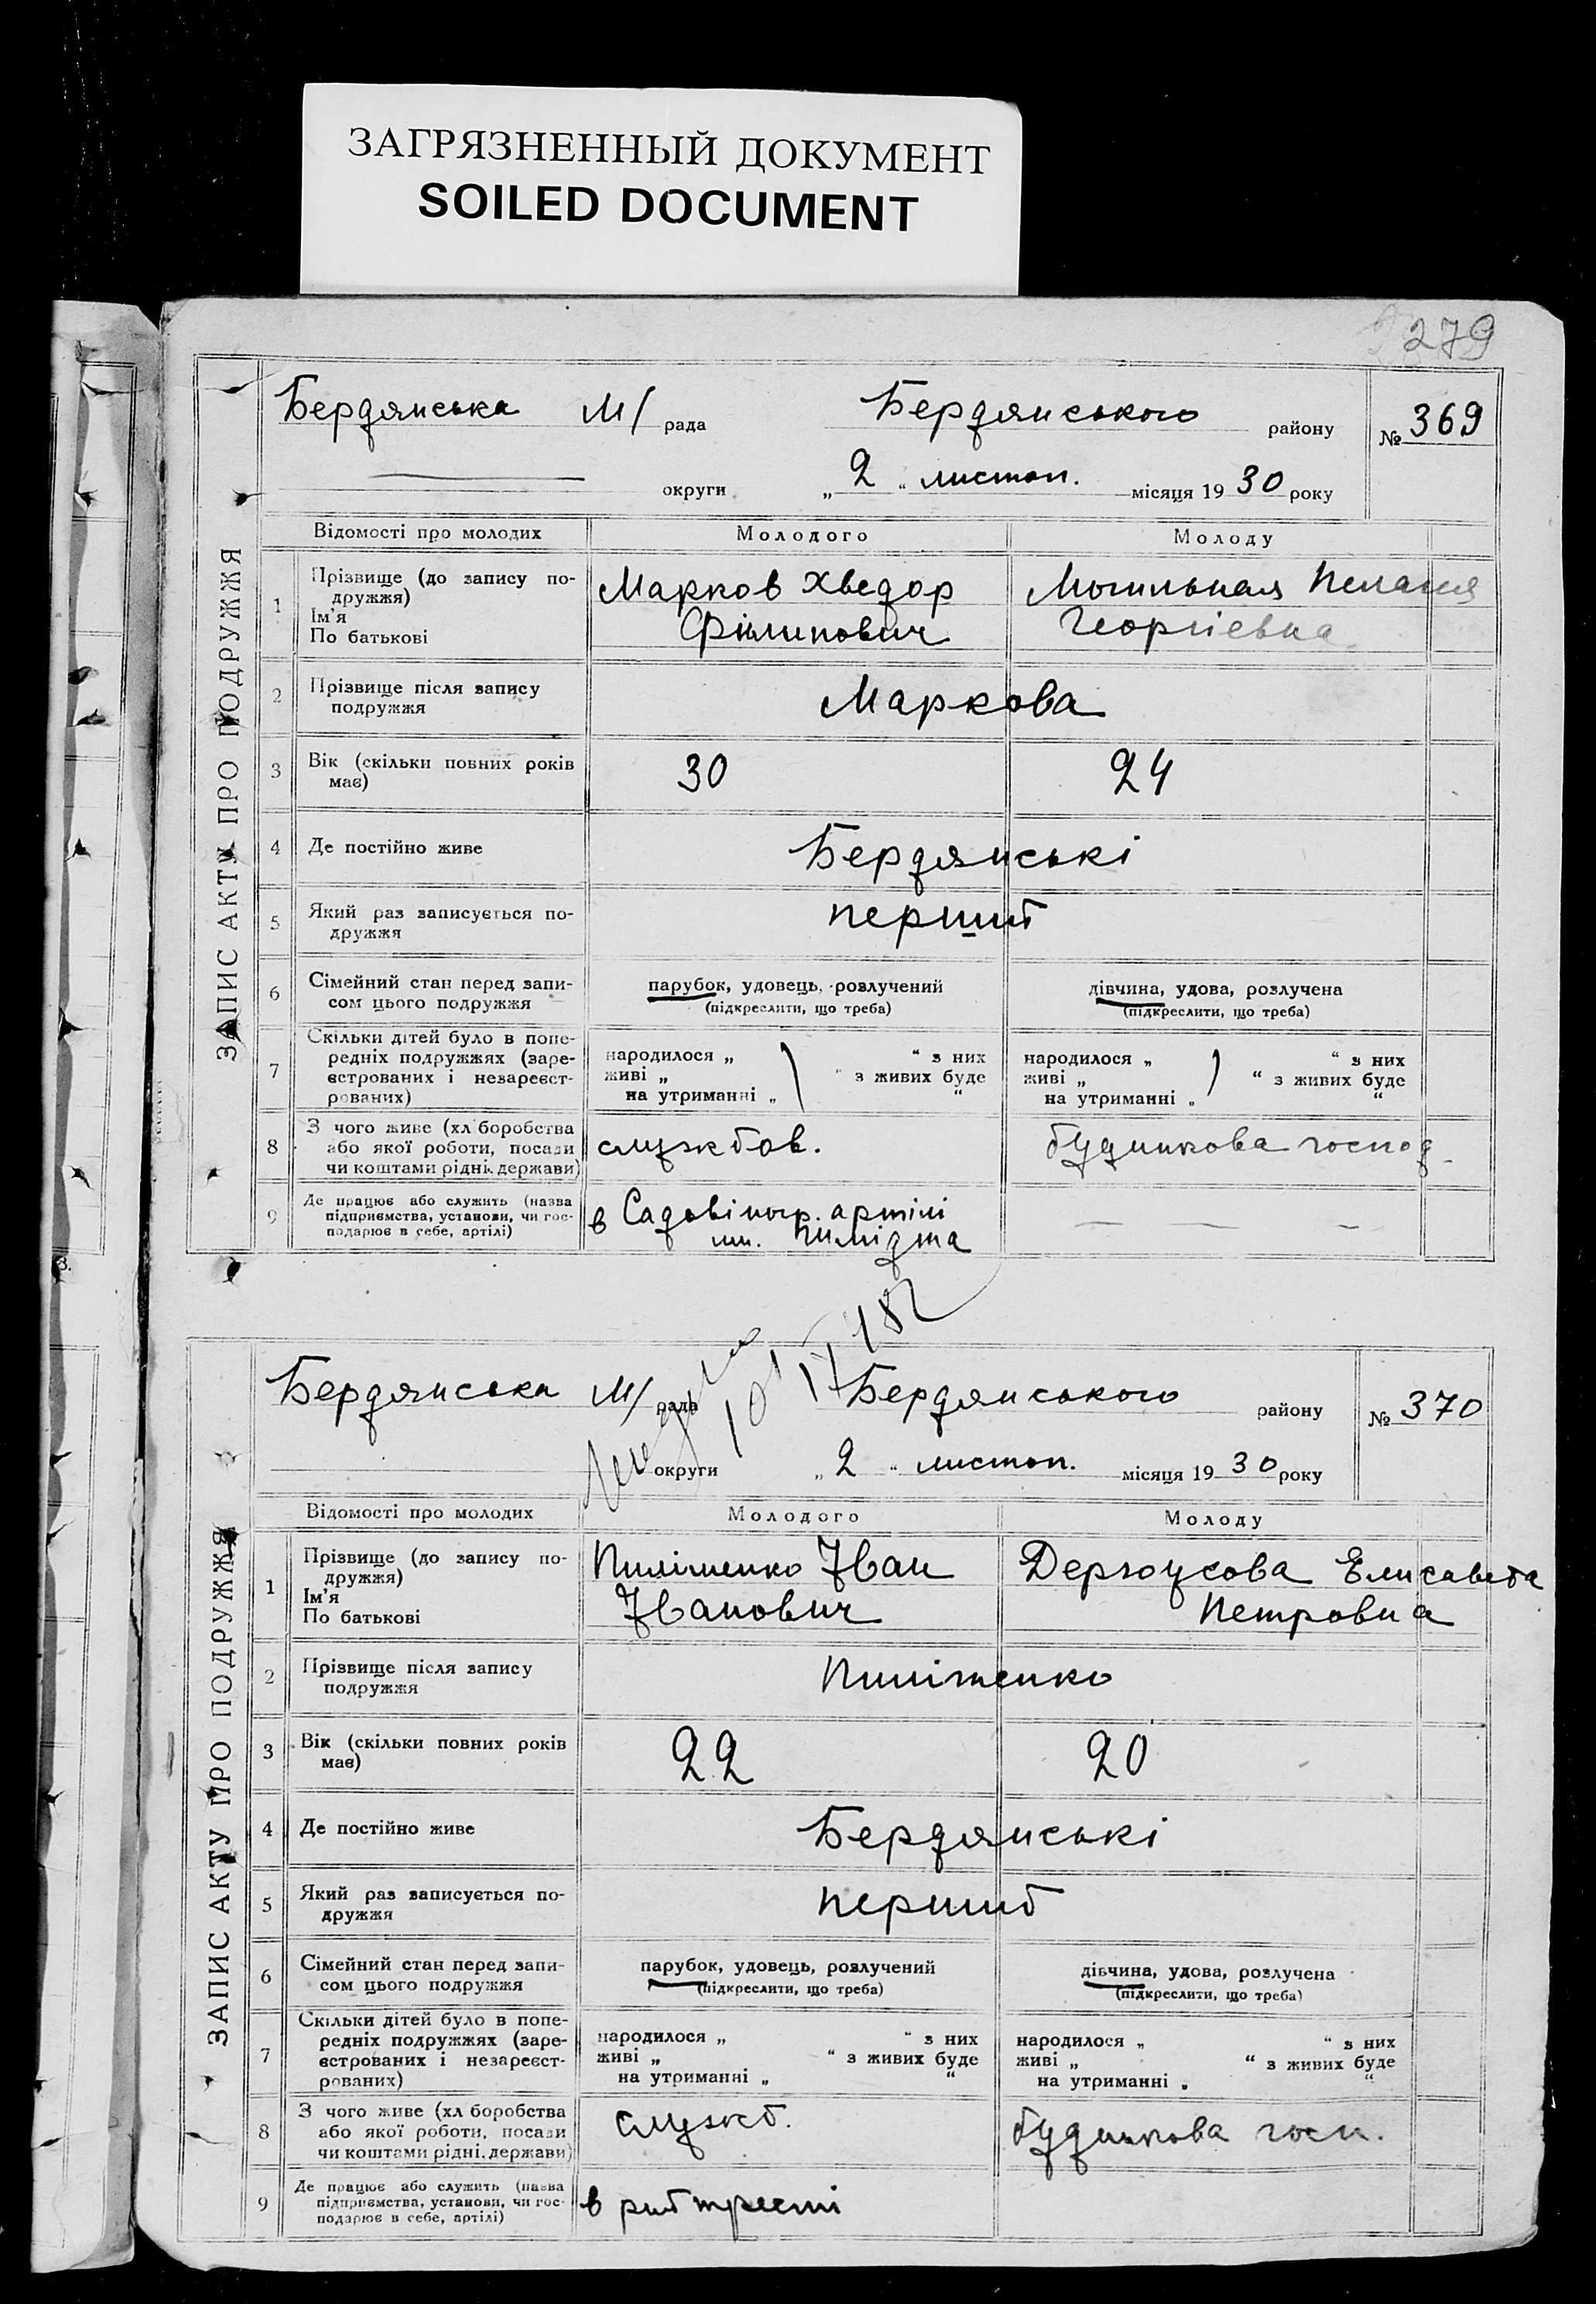 ЗАГРЯЗНЕННЫЙ ДОКУМЕНТ
SOILED DOCUMENT
279
ЗАПИС АКТУ ПРО ПОДРУЖЖЯ
Бердянська М/ рада Бердянського району № 369
округи „ 2 “ листоп. місяця 19 30 року
Відомості про молодих Молодого Молоду
1 Прізвище (до запису по-
дружжя)
Ім'я
По батькові
Марков Хведор
Філипович
Могильная Пелагея
Георгіевна
2 Прізвище після запису
подружжя
Маркова
3 Вік (скільки повних років
має)
30 24
4 Де постійно живе Бердянські
5 Який раз записується по-
дружжя
перший
6 Сімейний стан перед запи-
сом цього подружжя
парубок, удовець, розлучений
(підкреслити, що треба)
дівчина, удова, розлучена
(підкреслити, що треба)
7 Скільки дітей було в попе-
редніх подружжях (заре-
єстрованих і незареєст-
рованих)
народилося „ “ з них
живі „ “ з живих буде
на утриманні „ “
народилося „ “ з них
живі „ “ з живих буде
на утриманні „ “
8 З чого живе (хл боробства
або якої роботи, посади
чи коштами рідні, держави)
службов.
будинкова господ.
9 Де працює або служить (назва
підприємства, установи, чи гос-
подарює в себе, артілі)
в Садовіногр. артілі
— — —
ЗАПИС АКТУ ПРО ПОДРУЖЖЯ
Бердянська М/ рада Бердянського району № 370
округи „ 2 “ листоп. місяця 19 30 року
Відомості про молодих Молодого Молоду
1 Прізвище (до запису по-
дружжя)
Ім'я
По батькові
Іван
Іванович
Дергоусова Елисавета
Петровна
2 Прізвище після запису
подружжя
3 Вік (скільки повних років
має)
22 20
4 Де постійно живе Бердянські
5 Який раз записується по-
дружжя
перший
6 Сімейний стан перед запи-
сом цього подружжя
парубок, удовець, розлучений
(підкреслити, що треба)
дівчина, удова, розлучена
(підкреслити, що треба)
7 Скільки дітей було в попе-
редніх подружжях (заре-
єстрованих і незареєст-
рованих)
народилося „ “ з них
живі „ “ з живих буде
на утриманні „ “
народилося „ “ з них
живі „ “ з живих буде
на утриманні „ “
8 З чого живе (хл боробства
або якої роботи, посади
чи коштами рідні, держави)
служб.
будинкова госп.
9 Де працює або служить (назва
підприємства, установи, чи гос-
подарює в себе, артілі)
в рибтресті